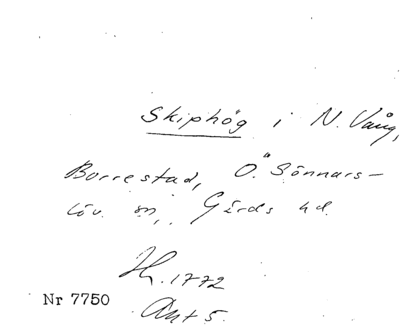 Skiphög i N. Vång,
Borrestad, Ö. Sönnars-
löv sn, Gärds hd.
H. 1772
Nr 7750
Akt 5.